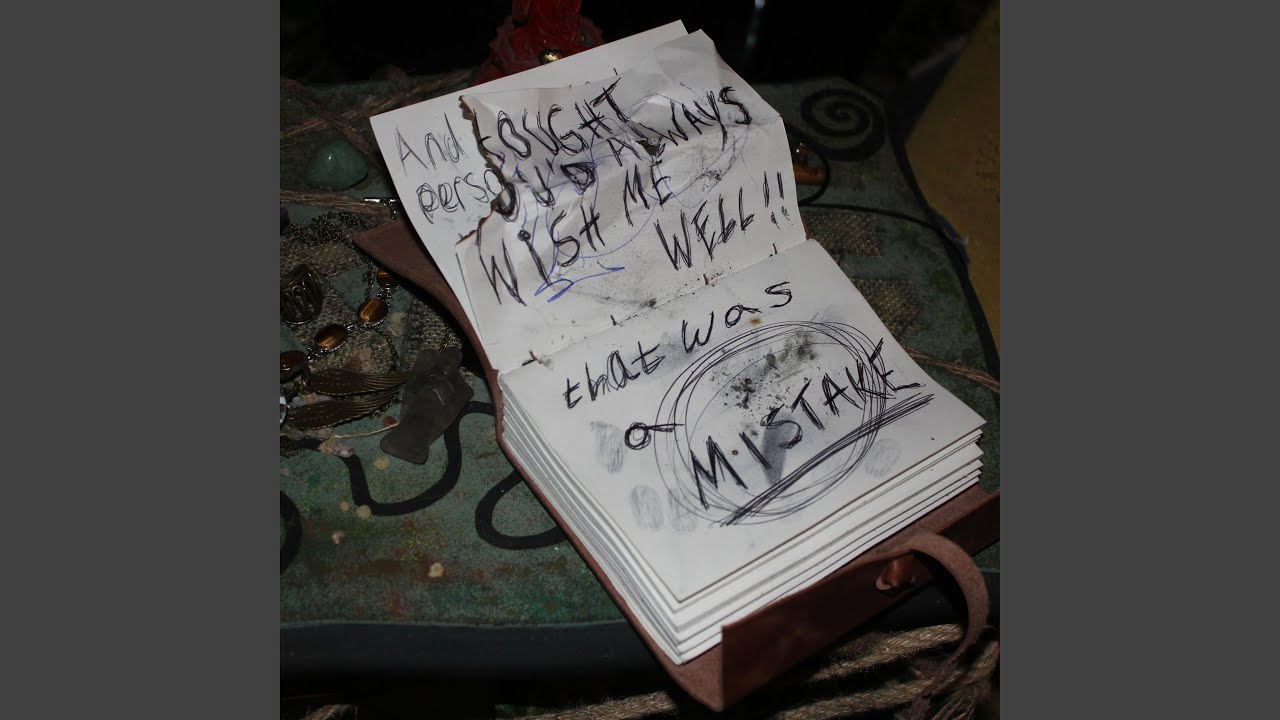 And
perso
OUGHT
OU'D ALWAYS
WISH ME
WELL!!
that was
a
MISTAKE